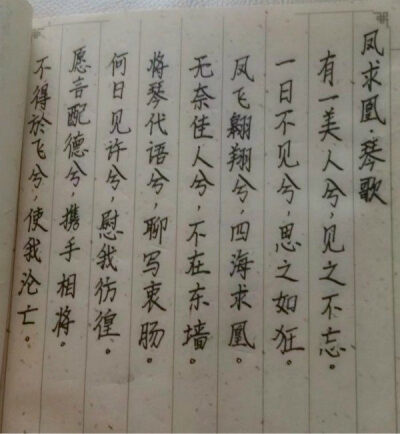 凤求凰·琴歌
有一美人兮,见之不忘。
一日不见兮,思之如狂。
凤飞翱翔兮,四海求凰。
无奈佳人兮,不在东墙。
将琴代语兮,聊写衷肠。
何日见许兮,慰我彷徨。
愿言配德兮,携手相将。
不得於飞兮,使我沦亡。